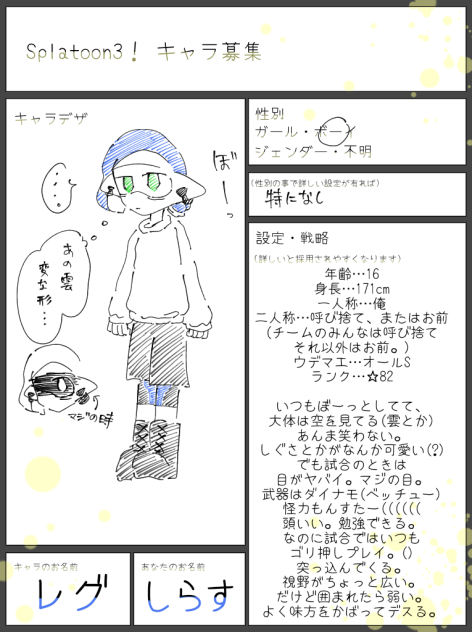 Splatoon3! キャラ募集
キャラデザ
ぼーっ
・・・
あの雲
変な形…
マジの時
性別
ガール・ボーイ
ジェンダー・不明
(性別の事で詳しい設定が有れば)
特になし
設定・戦略
(詳しいと採用されやすくなります)
年齢…16
身長…171cm
一人称…俺
二人称…呼び捨て、またはお前
(チームのみんなは呼び捨て
それ以外はお前。)
ウデマエ…オールS
ランク…☆82
いつもぼーっとしてて、
大体は空を見てる(雲とか)
あんま笑わない。
しぐさとかがなんか可愛い(?)
でも試合のときは
目がヤバイ。マジの目。
武器はダイナモ(ベッチュー)
怪力もんすたー((((((
頭いい。勉強できる。
なのに試合ではいつも
ゴリ押しプレイ。()
突っ込んでくる。
視野がちょっと広い。
だけど囲まれたら弱い。
よく味方をかばってデスる。
キャラのお名前
レグ
あなたのお名前
しらす